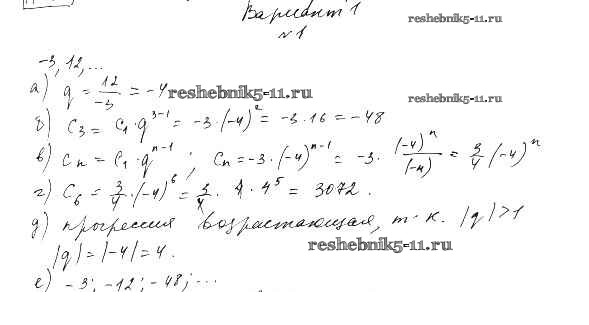 Вариант 1
reshebnik5-11.ru
№1
-3, 12, ...
а) q = 12/-3 = -4
reshebnik5-11.ru
reshebnik5-11.ru
б) C₃ = C₁·q³⁻¹ = -3·(-4)² = -3·16 = -48
в) Cₙ = C₁·qⁿ⁻¹; Cₙ = -3·(-4)ⁿ⁻¹ = -3·(-4)ⁿ/(-4) = 3/4(-4)ⁿ
г) C₆ = 3/4·(-4)⁶ = 3/4·4·4⁵ = 3072.
д) прогрессия возрастающая, т.к. |q|>1
|q| = |-4| = 4.
reshebnik5-11.ru
е) -3; -12; -48; ...